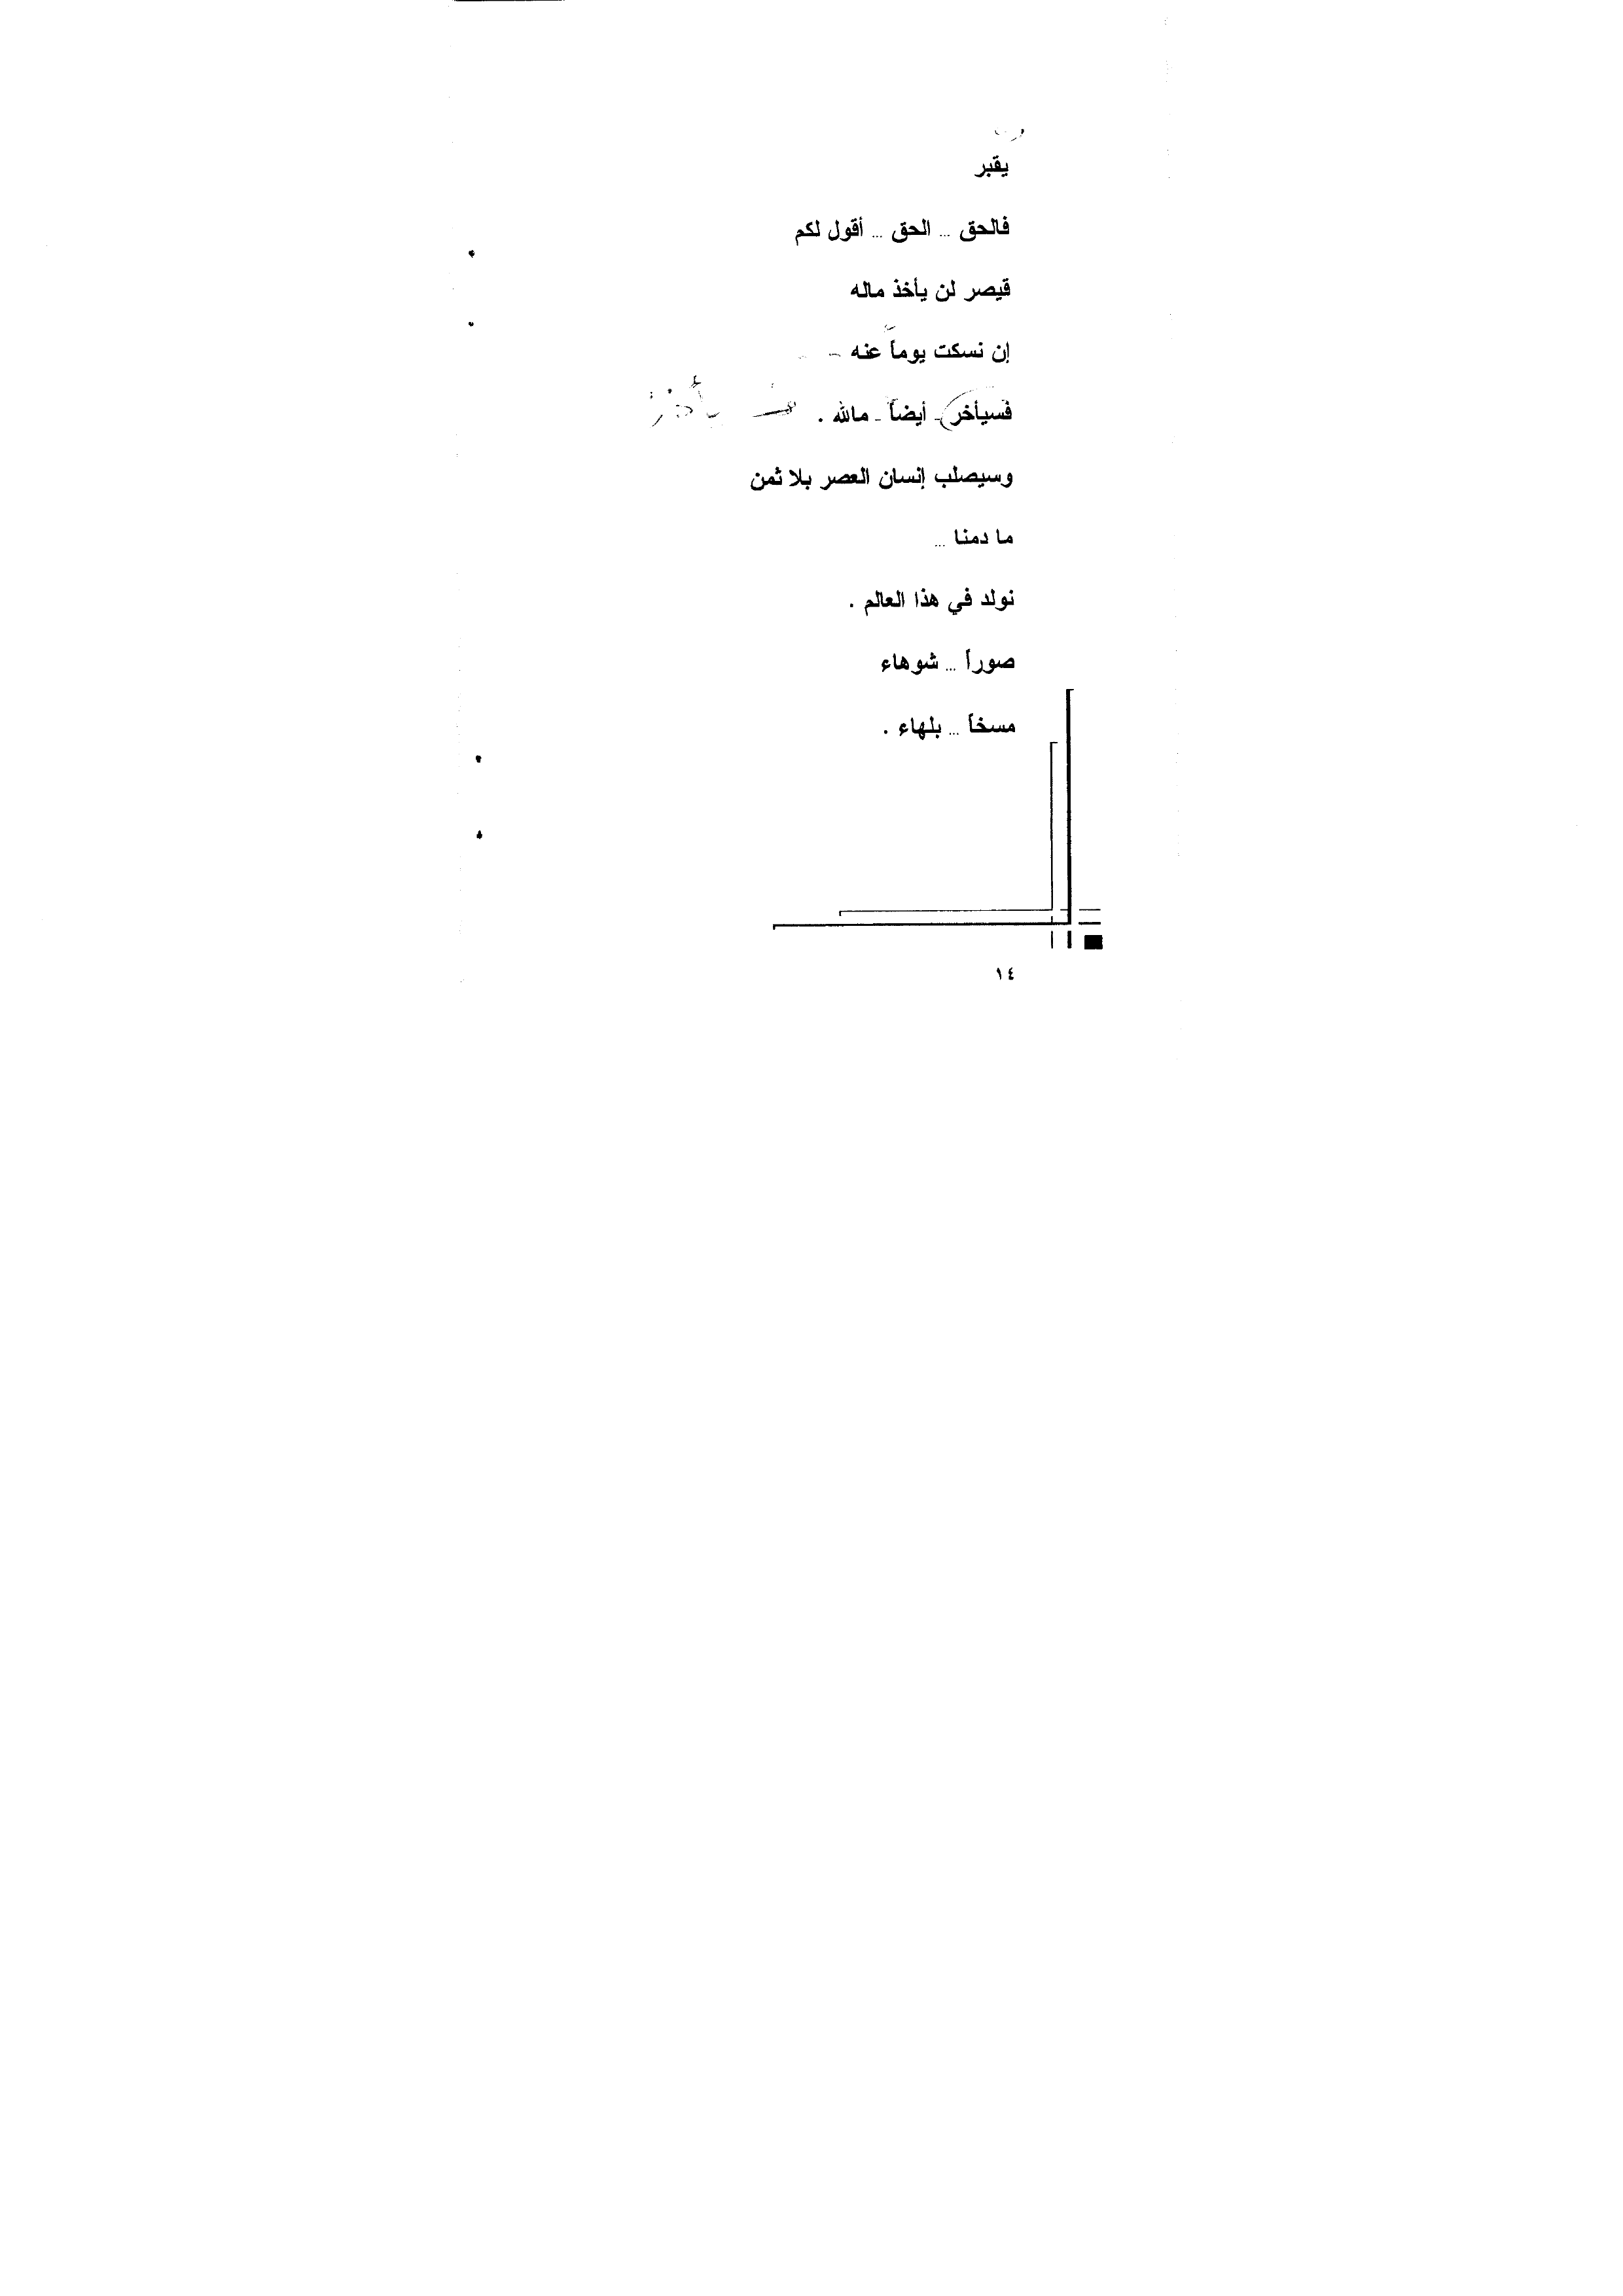 يقبر
فالحق ... الحق ... أقول لكم
قيصر لن يأخذ ماله
إن نسكت يوماً عنه
فسيأخر - أيضاً - مالله .
وسيصلب إنسان العصر بلا ثمن
ما دمنا ...
نولد في هذا العالم .
صوراً ... شوهاء
مسخاً ... بلهاء .
١٤